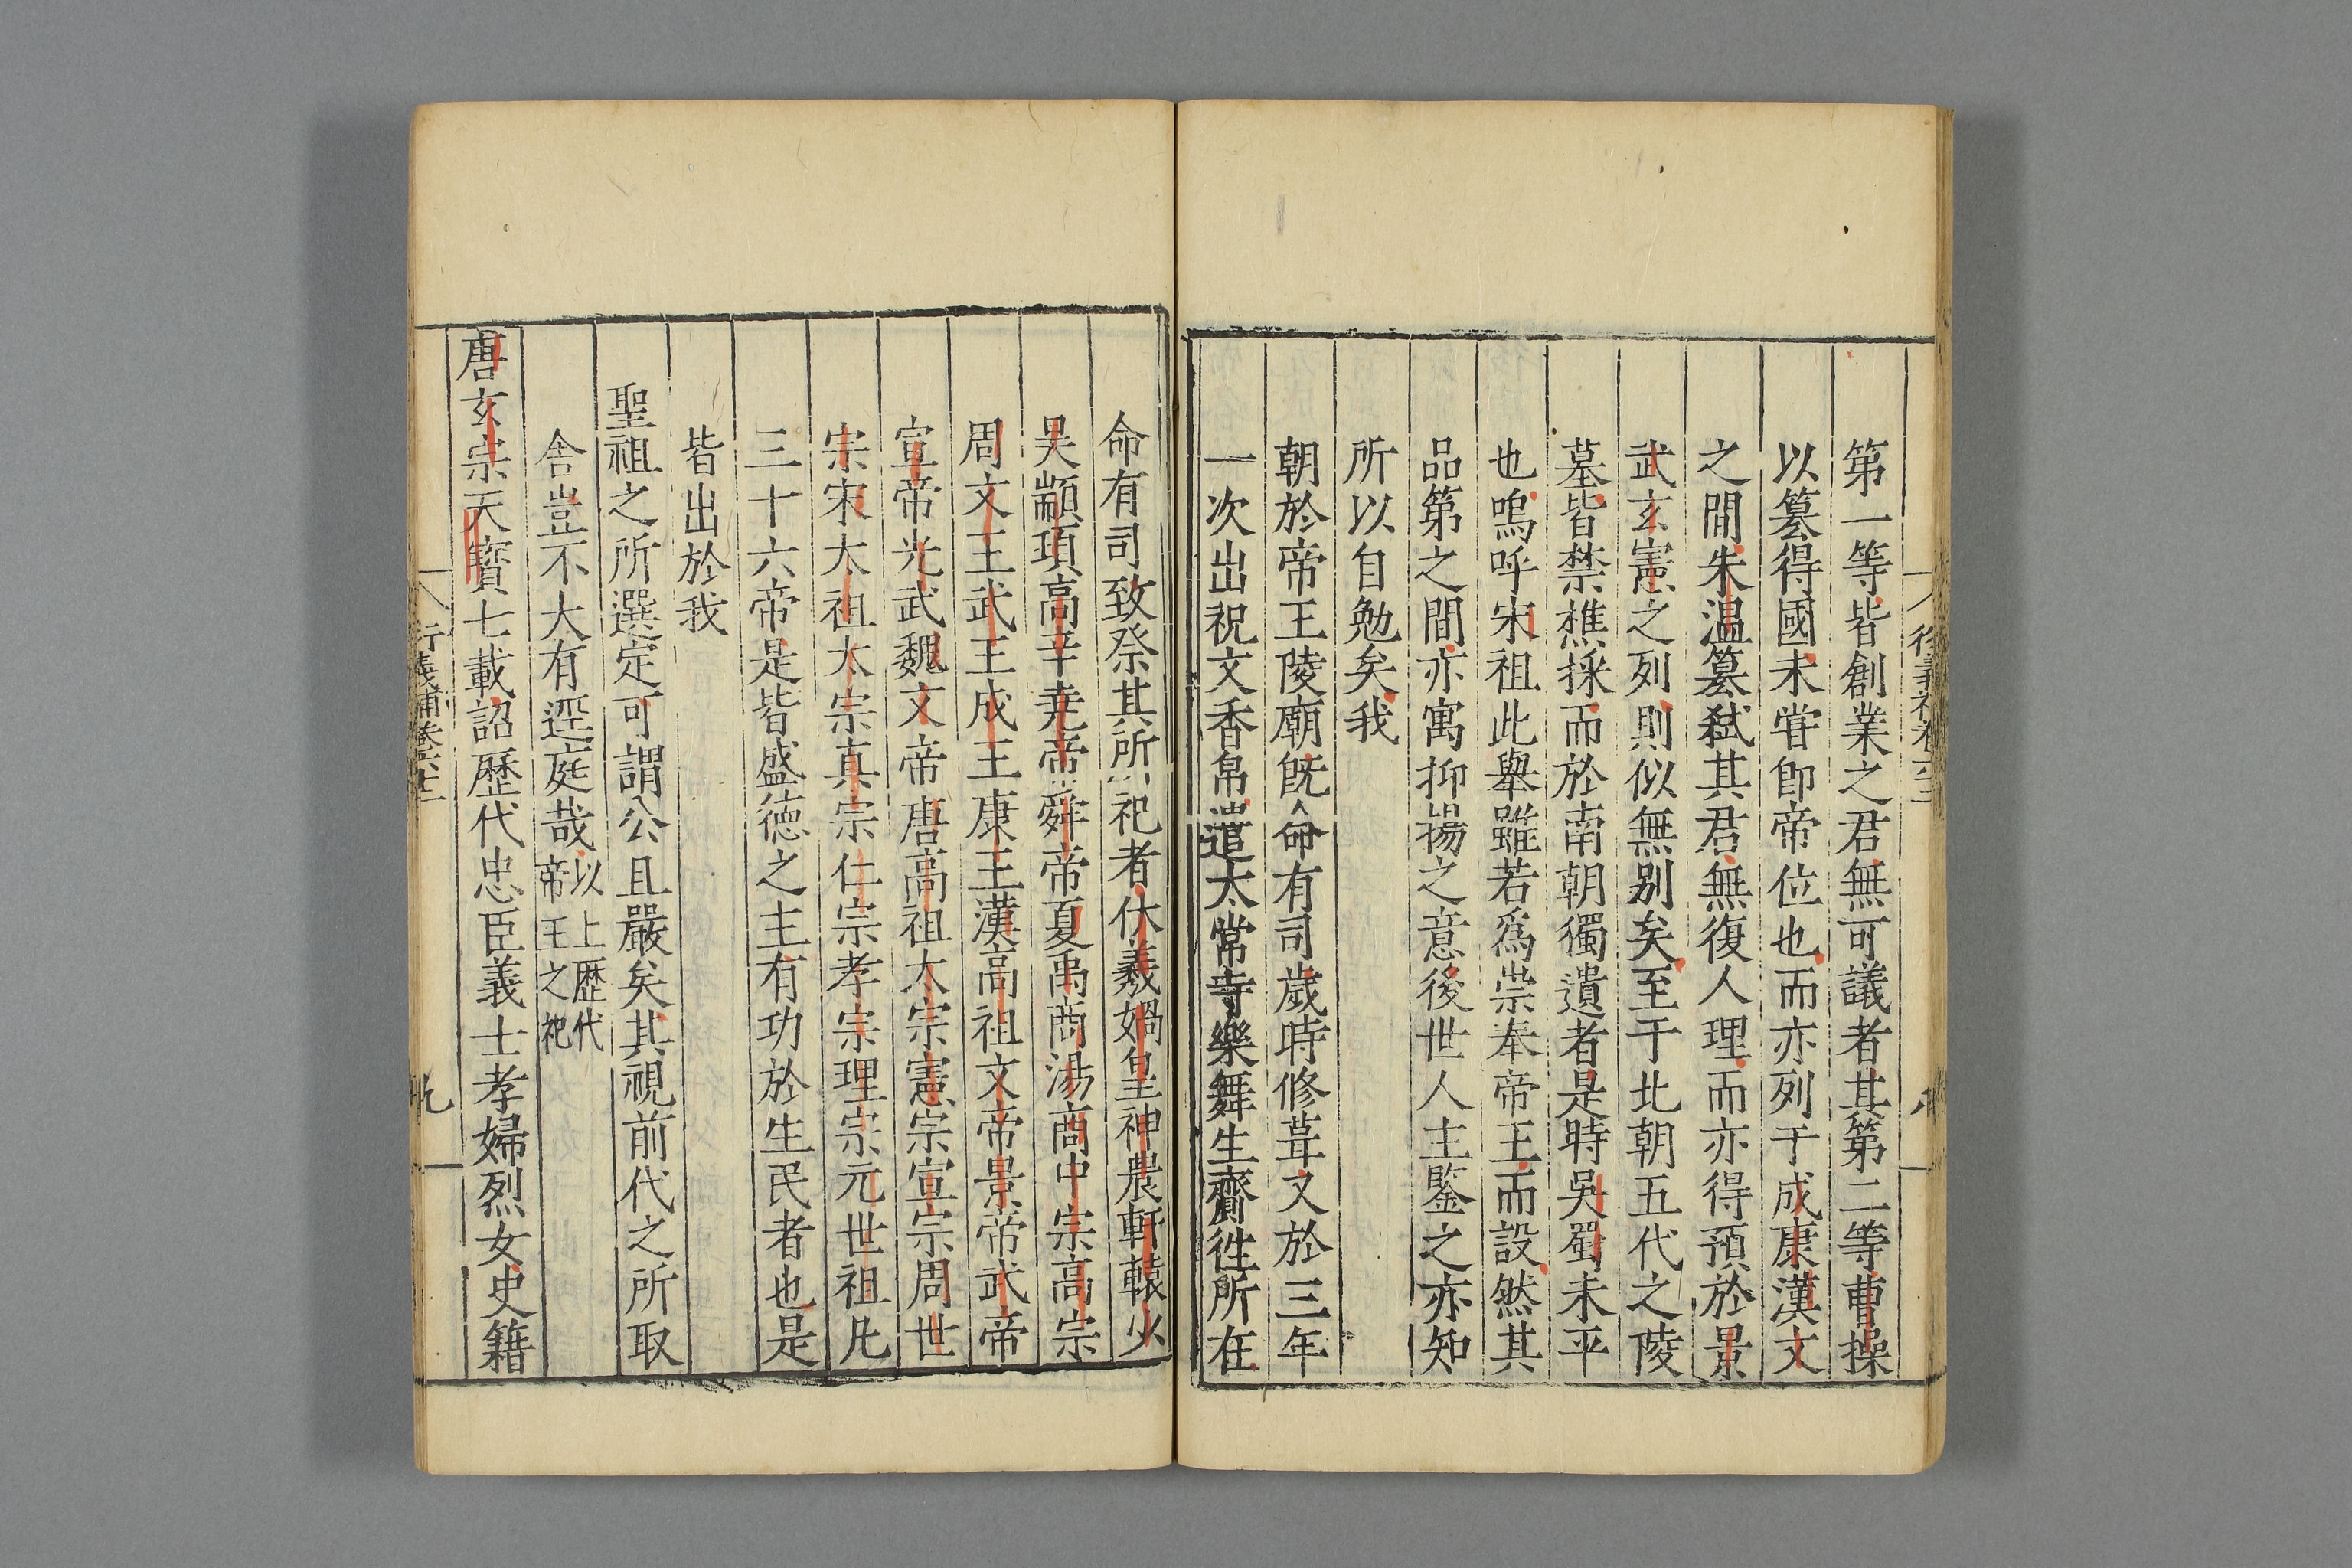 第一等皆創業之君無可議者其第二等曹操
以篡得國未甞卽帝位也而亦列于成康漢文
之間朱温篡弒其君無復人理而亦得預於景
武玄憲之列則似無别矣至于北朝五代之陵
墓皆禁樵採而於南朝獨遺者是時吳蜀未平
也嗚呼宋祖此舉雖若爲崇奉帝王而設然其
品第之間亦寓抑揚之意後世人主鑒之亦知
所以自勉矣我
朝於帝王陵廟旣命有司歲時修葺又於三年
一次出祝文香帛遣太常寺樂舞生齎徃所在
命有司致祭其所祀者伏羲媧皇神農軒轅少
昊顓頊高辛堯帝舜帝夏禹商湯商中宗高宗
周文王武王成王康王漢高祖文帝景帝武帝
宣帝光武魏文帝唐高祖太宗憲宗宣宗周世
宗宋太祖太宗真宗仁宗孝宗理宗元世祖凡
三十六帝是皆盛德之主有功於生民者也是
皆出於我
聖祖之所選定可謂公且嚴矣其視前代之所取
舍豈不大有逕庭哉以上歷代帝王之祀
唐玄宗天寶七載詔歷代忠臣義士孝婦烈女史籍
衍義補卷六十二
九